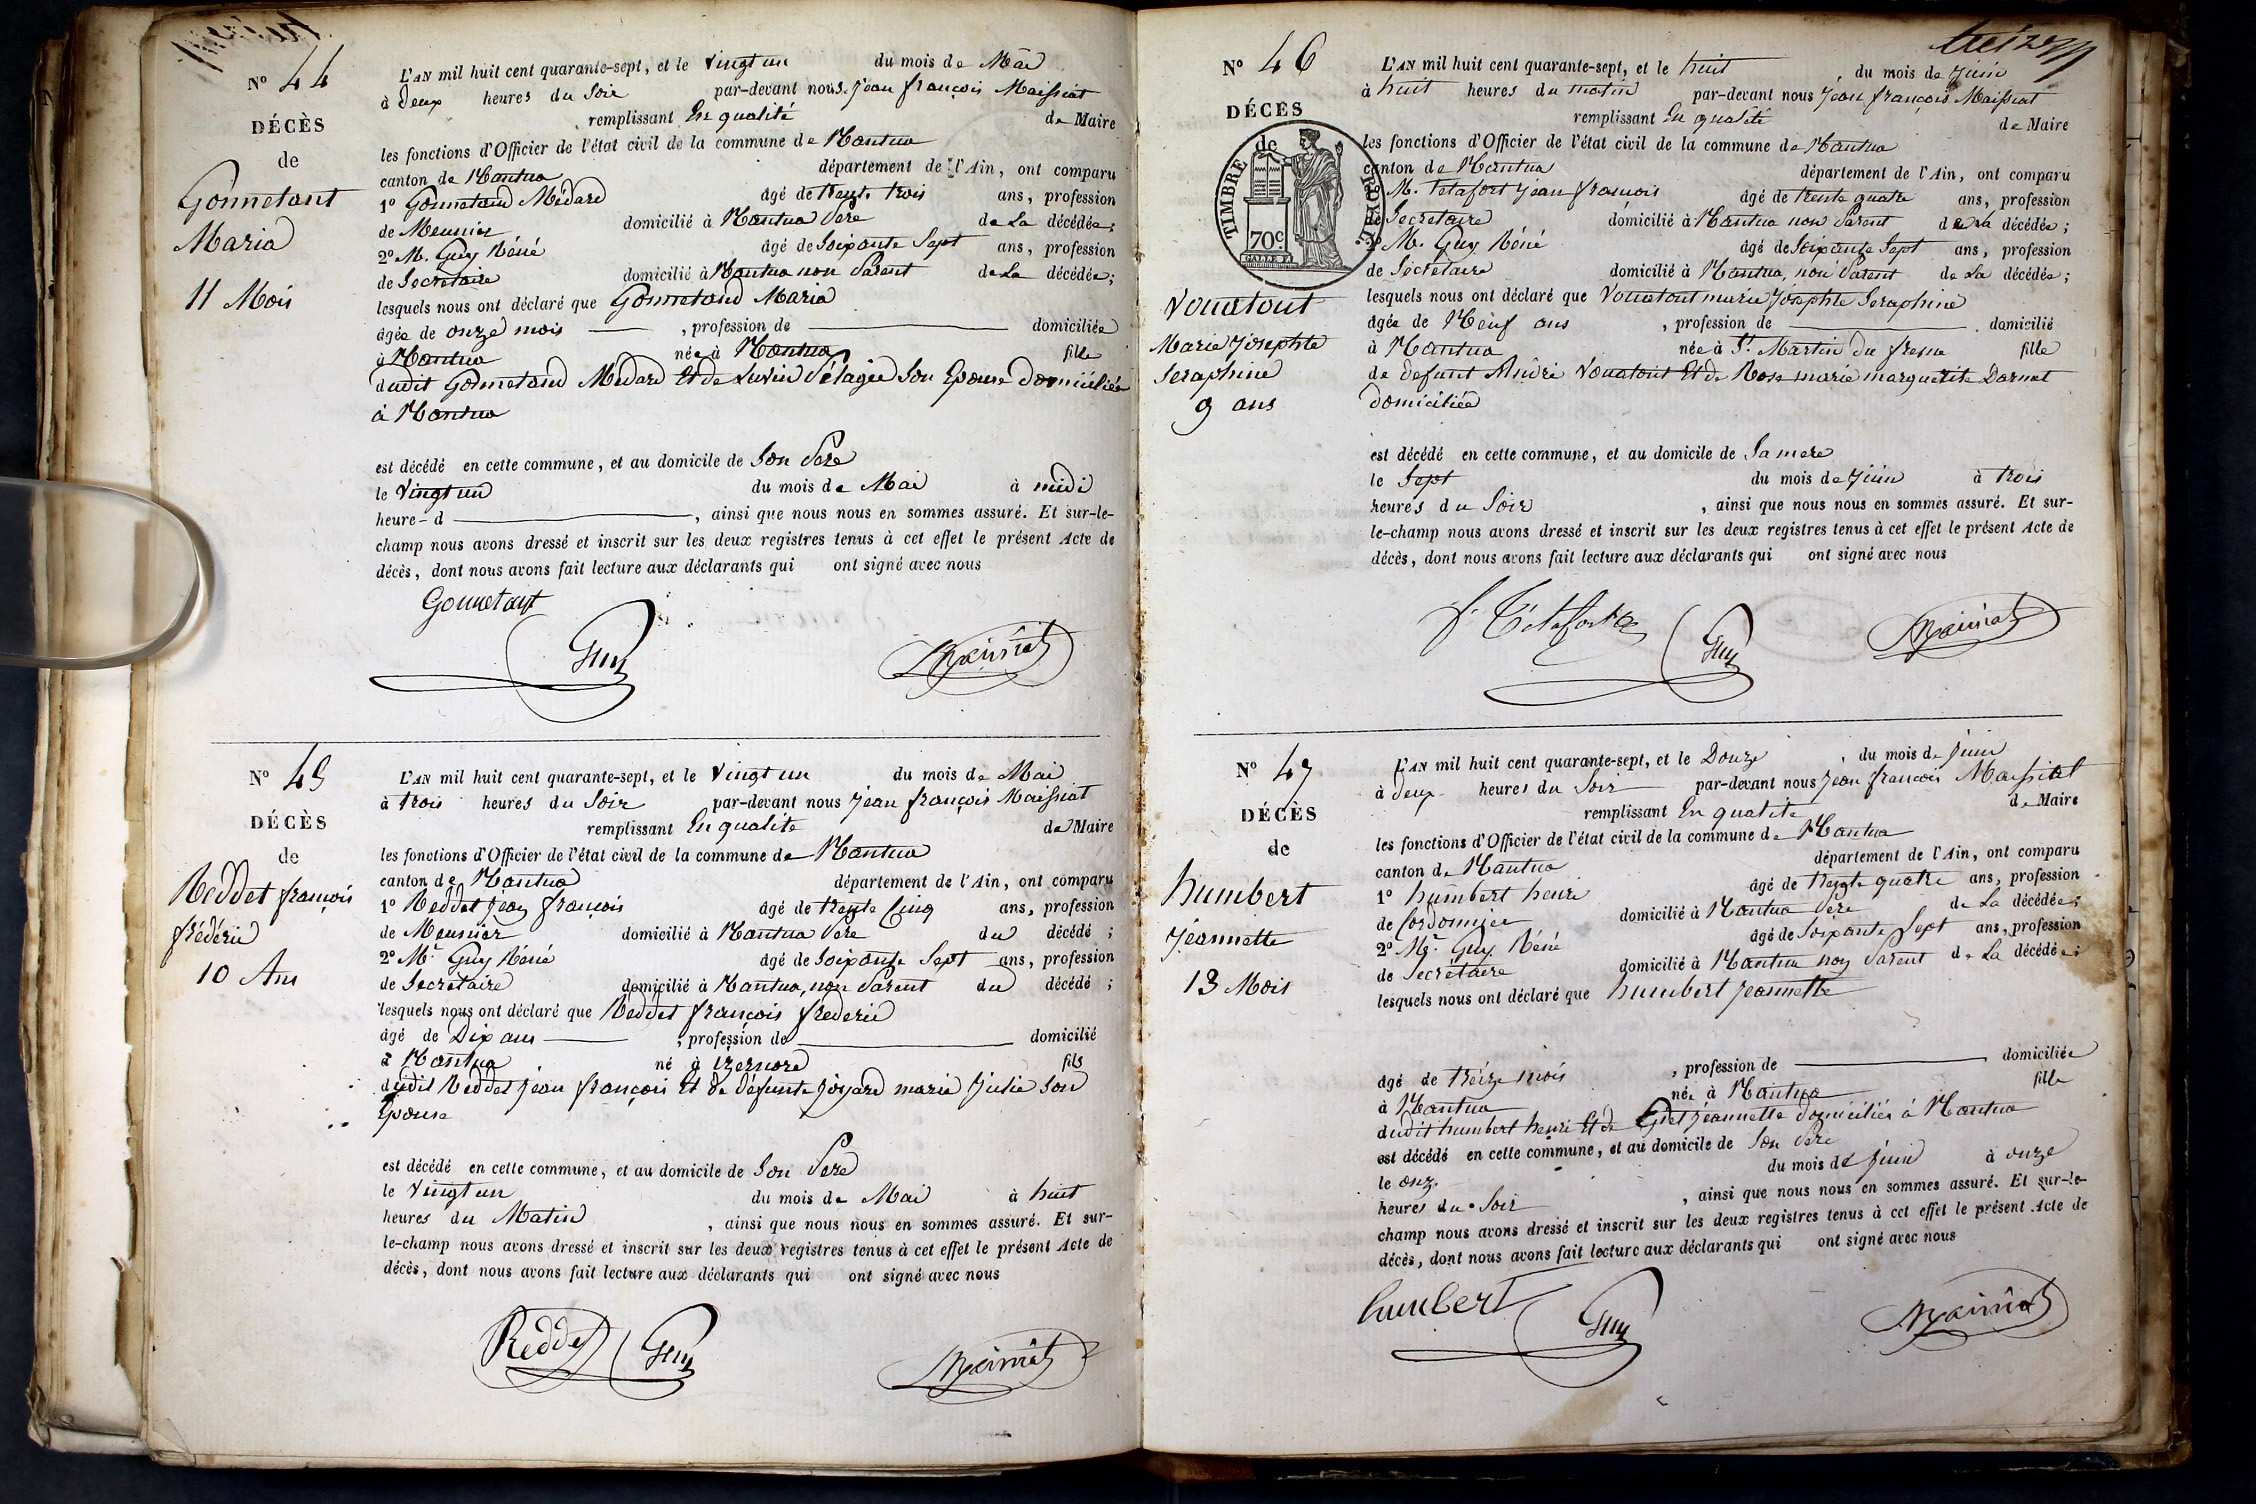 N° 44
DÉCÈS
de
Gonnetant
Maria
11 Mois
L'AN mil huit cent quarante-sept, et le vingt un du mois de Mai
à deux heures du Soir par-devant nous Jean françois Maissiat
remplissant En qualité de Maire
les fonctions d'Officier de l'état civil de la commune de Nantua
canton de Nantua département de l'Ain, ont comparu
1° Gonnetand Médard âgé de trente trois ans, profession
de Meunier domicilié à Nantua Père de La décédée;
2° M. Guy Réné âgé de Soixante Sept ans, profession
de Secrétaire domicilié à Nantua non Parent de La décédée;
lesquels nous ont déclaré que Gonnetand Maria
âgée de onze mois , profession de domiciliée
à Nantua née à Nantua fille
dudit Gonnetand Médard Et de Pélagie Son Epouse domiciliés
à Nantua
est décédé en cette commune, et au domicile de Son Père
le Vingt un du mois de Mai à midi
heure d , ainsi que nous nous en sommes assuré. Et sur-le-
champ nous avons dressé et inscrit sur les deux registres tenus à cet effet le présent Acte de
décès, dont nous avons fait lecture aux déclarants qui ont signé avec nous
Gonnetant
Guy
Maissiat
N° 45
DÉCÈS
de
Reddet françois
frédéric
10 Ans
L'AN mil huit cent quarante-sept, et le vingt un du mois de Mai
à trois heures du Soir par-devant nous Jean françois Maissiat
remplissant En qualité de Maire
les fonctions d'Officier de l'état civil de la commune de Nantua
canton de Nantua département de l'Ain, ont comparu
1° Reddet Jean françois âgé de trente Cinq ans, profession
de Meunier domicilié à Nantua Père du décédé ;
2° Mr Guy Réné âgé de Soixante Sept ans, profession
de Secrétaire domicilié à Nantua, non Parent du décédé ;
lesquels nous ont déclaré que Reddet françois frederic
âgé de Dix ans , profession de domicilié
à Nantua né à izernore fils
dudit Reddet Jean françois Et de défunte Joyard marie Julie Son
Epouse
est décédé en cette commune, et au domicile de Son Père
le Vingt un du mois de Mai à huit
heures du Matin , ainsi que nous nous en sommes assuré. Et sur-
le-champ nous avons dressé et inscrit sur les deux registres tenus à cet effet le présent Acte de
décès, dont nous avons fait lecture aux déclarants qui ont signé avec nous
Reddet
Guy
Maissiat
treize
N° 46
DÉCÈS
de
TIMBRE ROYAL
70c
Vouatout
Marie Josephte
Seraphine
9 ans
L'AN mil huit cent quarante-sept, et le huit , du mois de Juin
à huit heures du matin par-devant nous Jean françois Maissiat
remplissant En qualité de Maire
les fonctions d'Officier de l'état civil de la commune de Nantua
canton de Nantua département de l'Ain, ont comparu
M. Tétafort Jean françois âgé de trente quatre ans, profession
de Secretaire domicilié à Nantua non Parent de La décédée ;
2° M. Guy Réné âgé de Soixante Sept ans, profession
de Secrétaire domicilié à Nantua, non Parent de La décédée ;
lesquels nous ont déclaré que Vouatout marie Josephte Seraphine
âgée de Neuf ans , profession de domicilié
à Nantua née à St Martin du fresne fille
de defunt André Vouatout Et de Rose marie marguerite Darnat
domiciliée
est décédé en cette commune, et au domicile de Sa mere
le Sept du mois de Juin à trois
heures du Soir , ainsi que nous nous en sommes assuré. Et sur-
le-champ nous avons dressé et inscrit sur les deux registres tenus à cet effet le présent Acte de
décès, dont nous avons fait lecture aux déclarants qui ont signé avec nous
f. Tétafort
Guy
Maissiat
N° 47
DÉCÈS
de
humbert
Jeannette
13 Mois
L'AN mil huit cent quarante-sept, et le Douze , du mois de Juin
à deux heures du Soir par-devant nous Jean françois Maissiat
remplissant En qualité de Maire
les fonctions d'Officier de l'état civil de la commune de Nantua
canton de Nantua département de l'Ain, ont comparu
1° humbert henri âgé de trente quatre ans, profession
de Cordonnier domicilié à Nantua Père de La décédée;
2° Mr. Guy Réné âgé de Soixante Sept ans, profession
de Secrétaire domicilié à Nantua non Parent de La décédée;
lesquels nous ont déclaré que humbert Jeannette
âgé de treize mois , profession de domiciliée
à Nantua née à Nantua fille
dudit humbert henri Et de Jeannette domiciliés à Nantua
est décédé en cette commune, et au domicile de Son Père
le onze du mois de Juin à onze
heures du Soir , ainsi que nous nous en sommes assuré. Et sur-le-
champ nous avons dressé et inscrit sur les deux registres tenus à cet effet le présent Acte de
décès, dont nous avons fait lecture aux déclarants qui ont signé avec nous
humbert
Guy
Maissiat